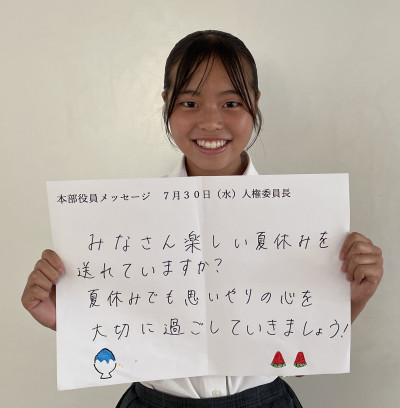 本部役員メッセージ　7月30日（水）人権委員長
みなさん楽しい夏休みを
送れていますか？
夏休みでも思いやりの心を
大切に過ごしていきましょう！